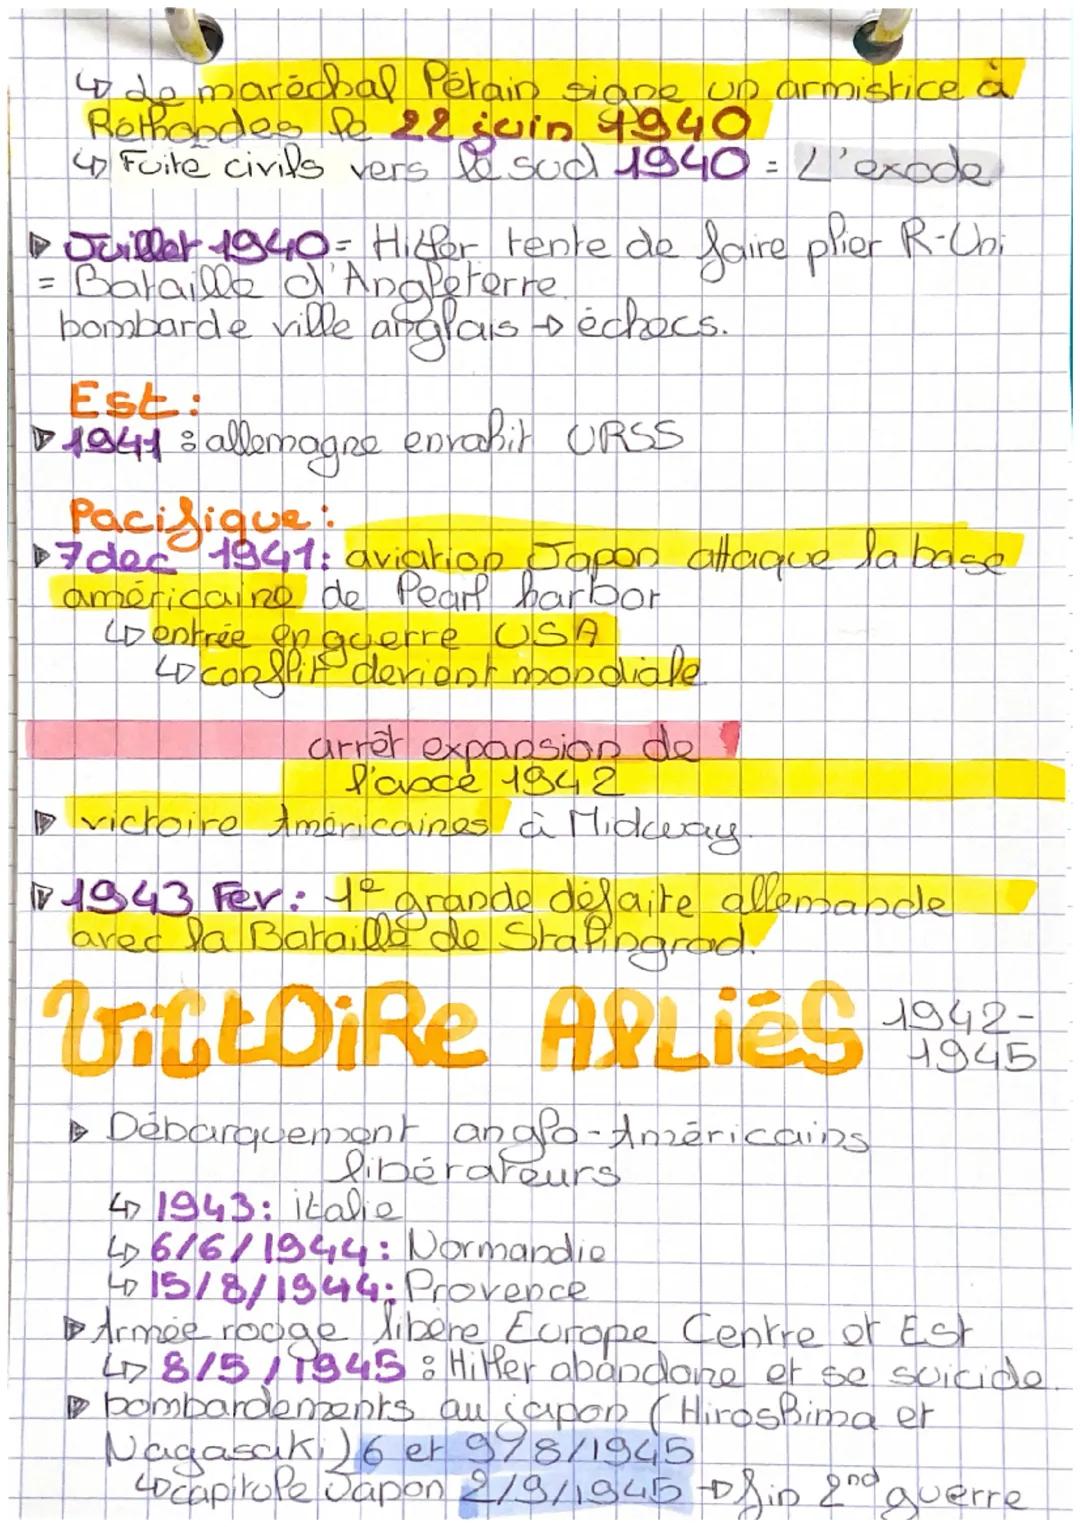 ↳ Le maréchal Pétain signe un armistice à
Réthondes le 22 juin 1940
↳ Fuite civils vers le sud 1940 = L'exode
▶ Juillet 1940 = Hitler tente de faire plier R-Uni
= Bataille d'Angleterre
bombarde ville anglais → échecs.
Est :
▶ 1941 : allemagne envahit URSS
Pacifique :
▶ 7 dec 1941 : aviation Japon attaque la base
américaine de Pearl harbor
↳ entrée en guerre USA
↳ conflit devient mondiale
arrêt expansion de
l'axce 1942
▶ victoire Américaines à Midway.
▶ 1943 Fev : 1e grande défaite allemande
avec la Bataille de Stalingrad.
ViCtOiRe ALLiéS 1942-
1945
▶ Débarquement anglo-Américains
libérateurs
↳ 1943 : italie
↳ 6/6/1944 : Normandie
↳ 15/8/1944 : Provence
▶ Armée rouge libère Europe Centre et Est
↳ 8/5/1945 : Hitler abandone et se suicide.
▶ bombardements au japon (Hiroshima et
Nagasaki) 6 et 9/8/1945
↳ capitule Japon 2/9/1945 → fin 2nd guerre